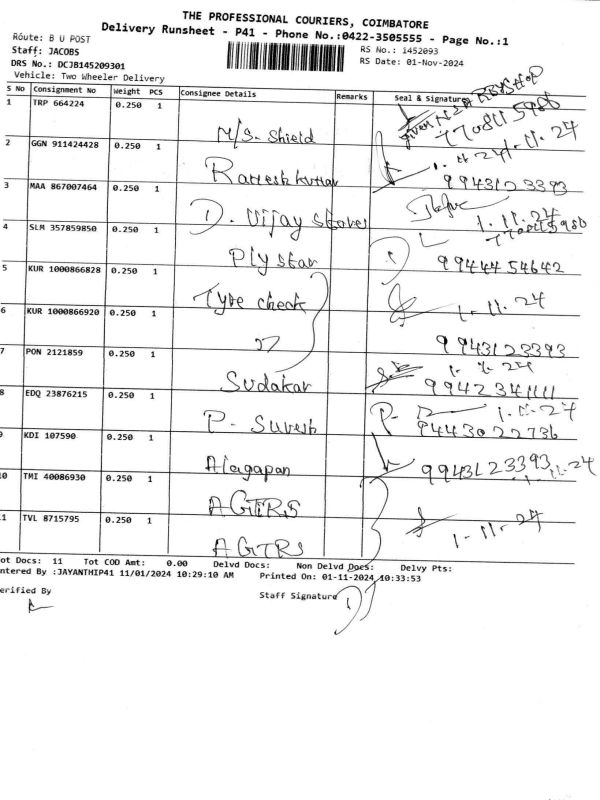 THE PROFESSIONAL COURIERS, COIMBATORE
Delivery Runsheet - P41 - Phone No.:0422-3505555 - Page No.:1
Route: B U POST
RS No.: 1452093
Staff: JACOBS
RS Date: 01-Nov-2024
DRS No.: DCJB145209301
Vehicle: Two Wheeler Delivery
S No Consignment No Weight PCS Consignee Details Remarks Seal & Signature
1 TRP 664224 0.250 1 M/S. Shield given 77081 5986 1-11-24
2 GGN 911424428 0.250 1 Rameshkumar 1-11-24 9943123393
3 MAA 867007464 0.250 1 D. Vijay stores 1-11-24
4 SLM 357859850 0.250 1 Plystar 9944454642
5 KUR 1000866828 0.250 1 Tyre check 1-11-24
6 KUR 1000866920 0.250 1 " 9943123393
7 PON 2121859 0.250 1 Sudakar 1-11-24 9942341111
8 EDQ 23876215 0.250 1 P. Suresh P. 1-11-24 9443022736
9 KDI 107590 0.250 1 Alagapan 9943123393 1-11-24
10 TMI 40086930 0.250 1 AGTRS
11 TVL 8715795 0.250 1 AGTRS 1-11-24
ot Docs: 11 Tot COD Amt: 0.00 Delvd Docs: Non Delvd Docs: Delvy Pts:
ntered By :JAYANTHIP41 11/01/2024 10:29:10 AM Printed On: 01-11-2024 10:33:53
erified By
Staff Signature